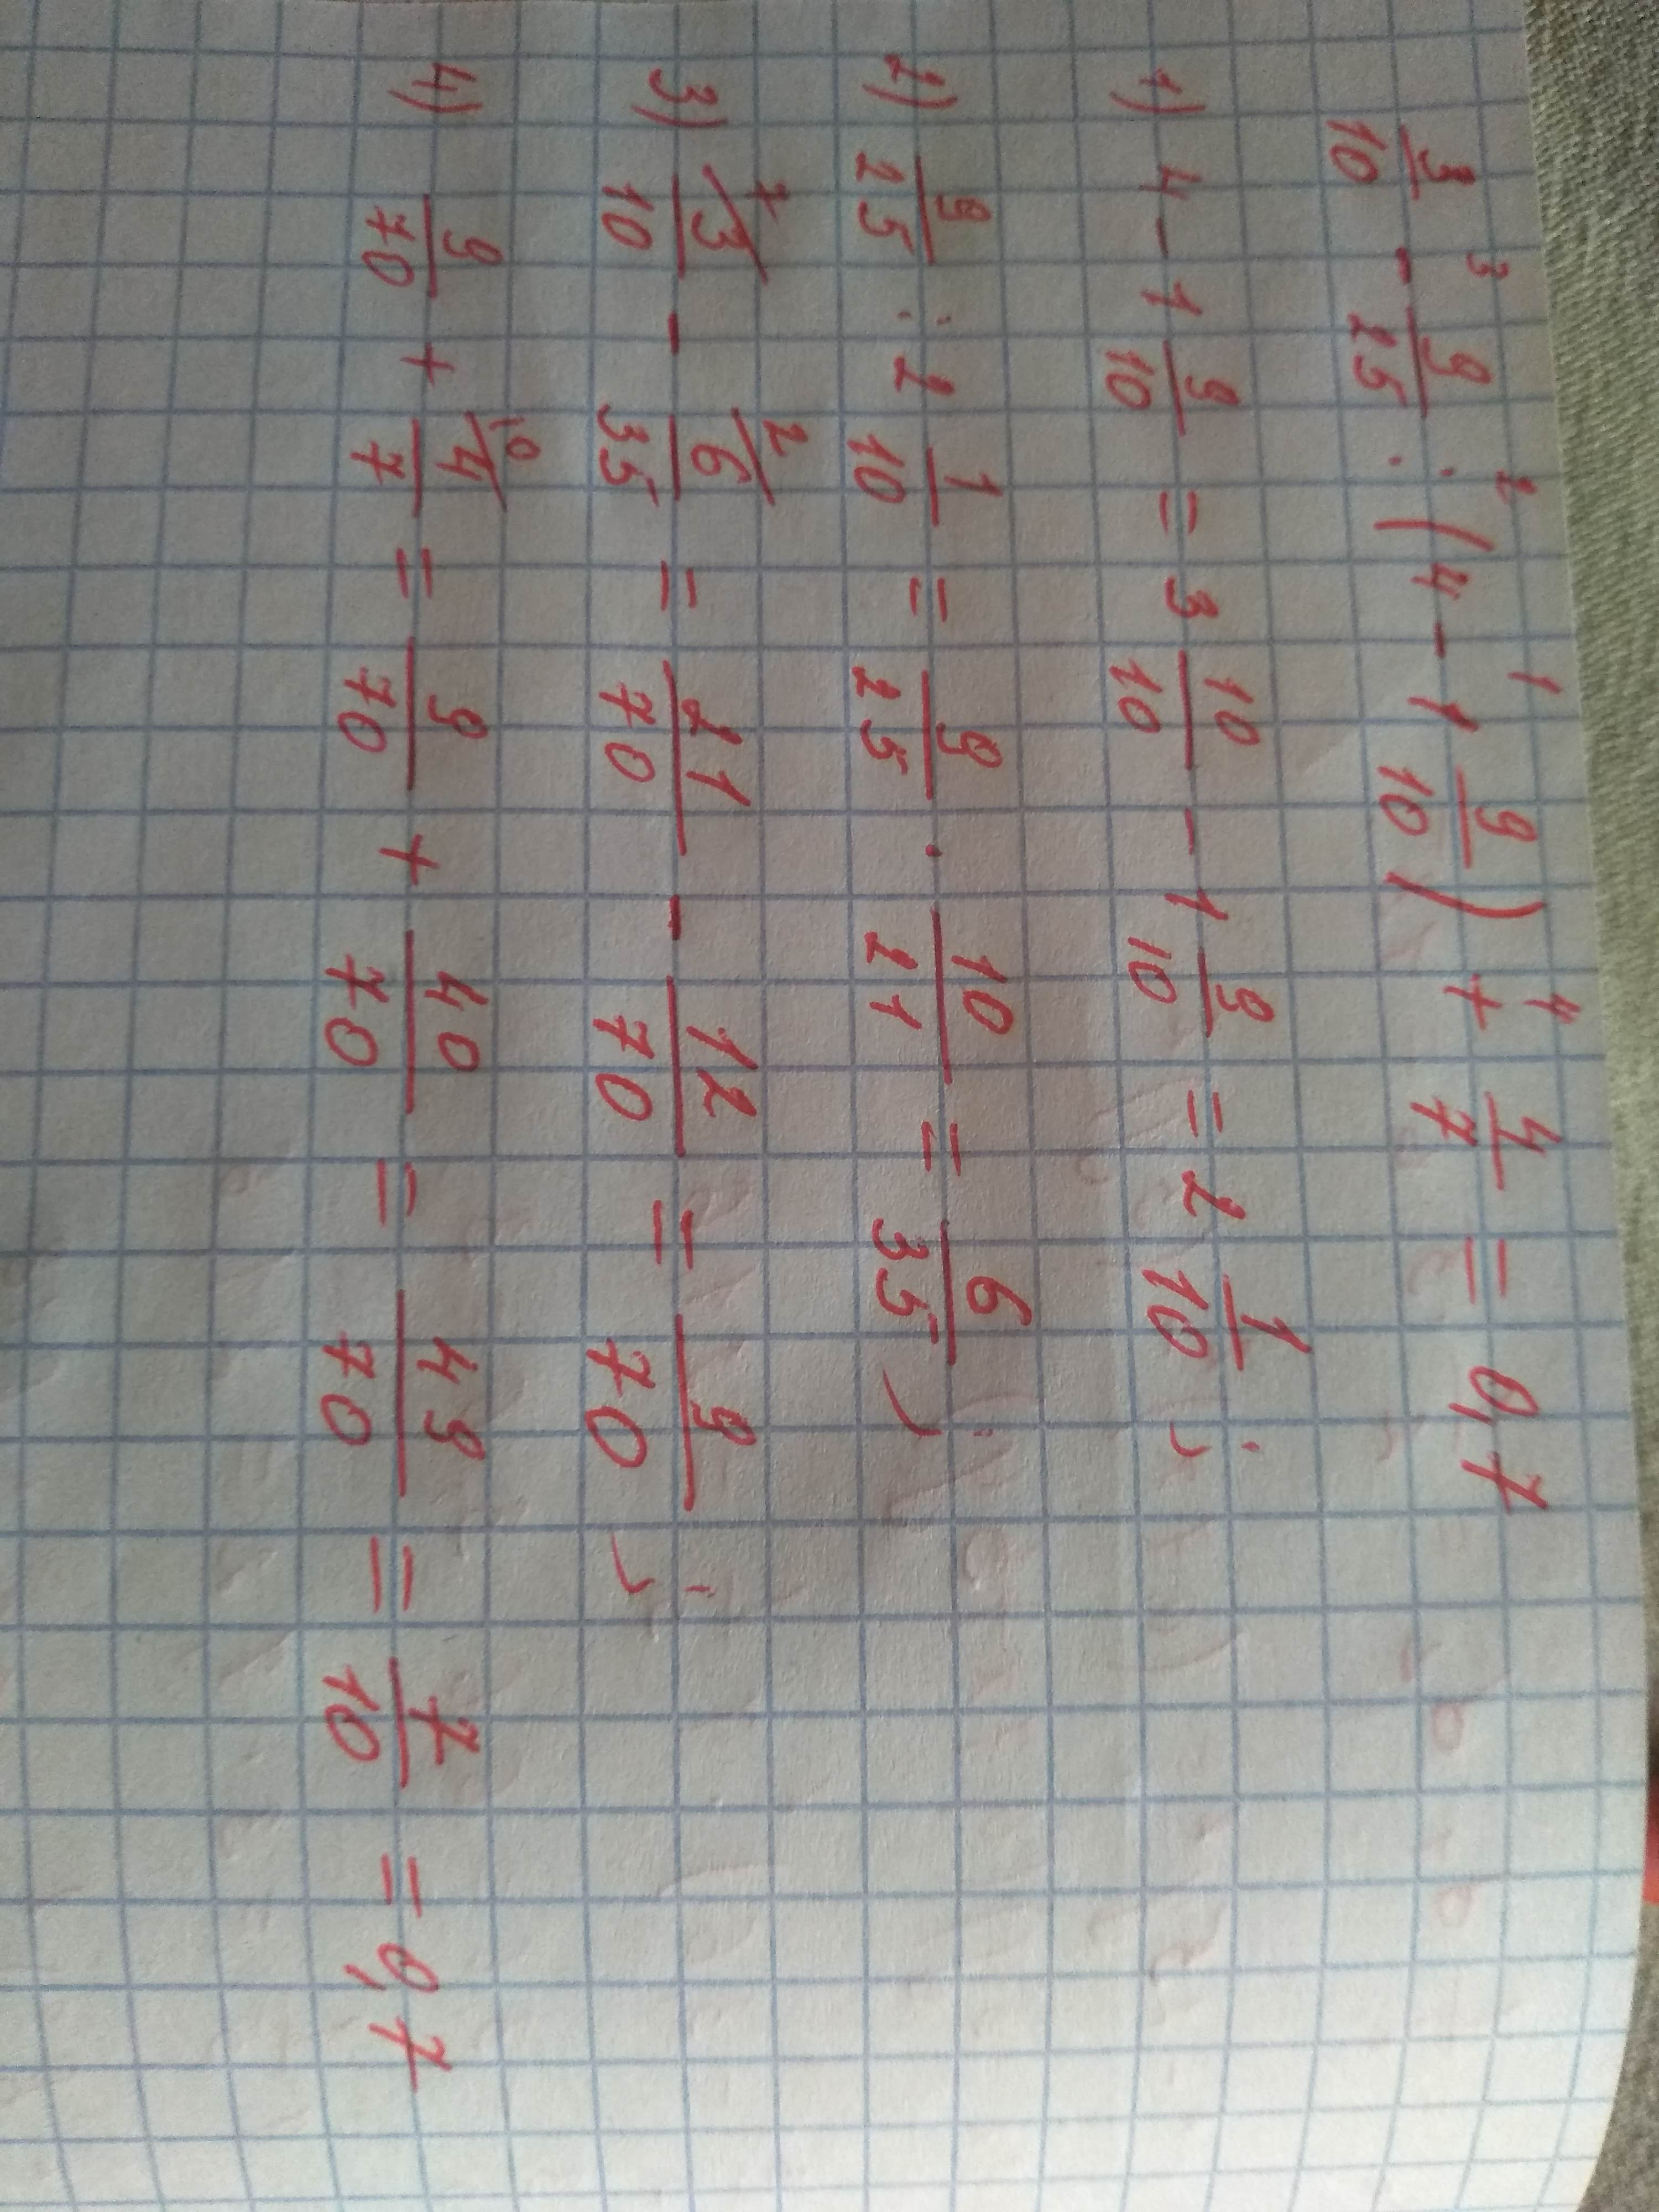 3/10 - 9/25 : (4 - 1 9/10) + 4/7 = 0,7
1) 4 - 1 9/10 = 3 10/10 - 1 9/10 = 2 1/10 ;
2) 9/25 : 2 1/10 = 9/25 · 10/21 = 6/35 ;
3) 3/10 - 6/35 = 21/70 - 12/70 = 9/70 ;
4) 9/70 + 4/7 = 9/70 + 40/70 = 49/70 = 7/10 = 0,7